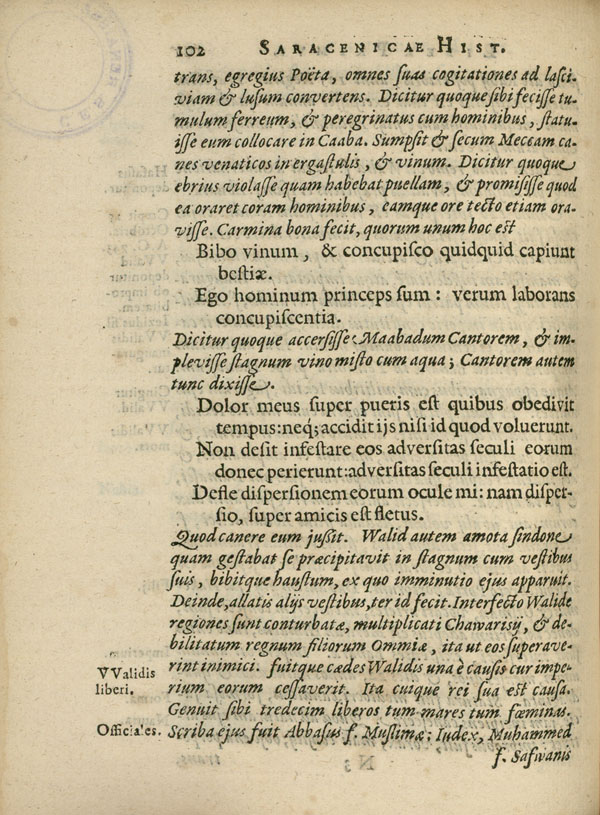 102 SARACENICAE HIST.
trans, egregius Poëta, omnes suas cogitationes ad lasci-
viam & lusum convertens. Dicitur quoque sibi fecisse tu-
mulum ferreum, & peregrinatus cum hominibus, statu-
isse eum collocare in Caaba. Sumpsit & secum Meccam ca-
nes venaticos in ergastulis, & vinum. Dicitur quoque
ebrius violasse quam habebat puellam, & promisisse quod
ea oraret coram hominibus, eamque ore tecto etiam ora-
visse. Carmina bona fecit, quorum unum hoc est
Bibo vinum, & concupisco quidquid capiunt
bestiæ.
Ego hominum princeps sum: verum laborans
concupiscentia.
Dicitur quoque accersisse Maabadum Cantorem, & im-
plevisse stagnum vino misto cum aqua; Cantorem autem
tunc dixisse.
Dolor meus super pueris est quibus obedivit
tempus: neq; accidit ijs nisi id quod voluerunt.
Non desit infestare eos adversitas seculi eorum
donec perierunt: adversitas seculi infestatio est.
Defle dispersionem eorum ocule mi: nam disper-
sio, super amicis est fletus.
Quod canere eum jussit. Walid autem amota sindone
quam gestabat se præcipitavit in stagnum cum vestibus
suis, bibitque haustum, ex quo imminutio ejus apparuit.
Deinde, allatis alijs vestibus, ter id fecit. Interfecto Walide
regiones sunt conturbatæ, multiplicati Chawarisij, & de-
bilitatum regnum filiorum Ommiæ, ita ut eos superave-
rint inimici. fuitque cædes Walidis una è causis cur impe-
VValidis
liberi.
rium eorum cessaverit. Ita cuique rei sua est causa.
Genuit sibi tredecim liberos tum mares tum fœminas.
Officiales. Scriba ejus fuit Abbasus f. Muslimæ; Iudex, Muhammed
f. Safwanis